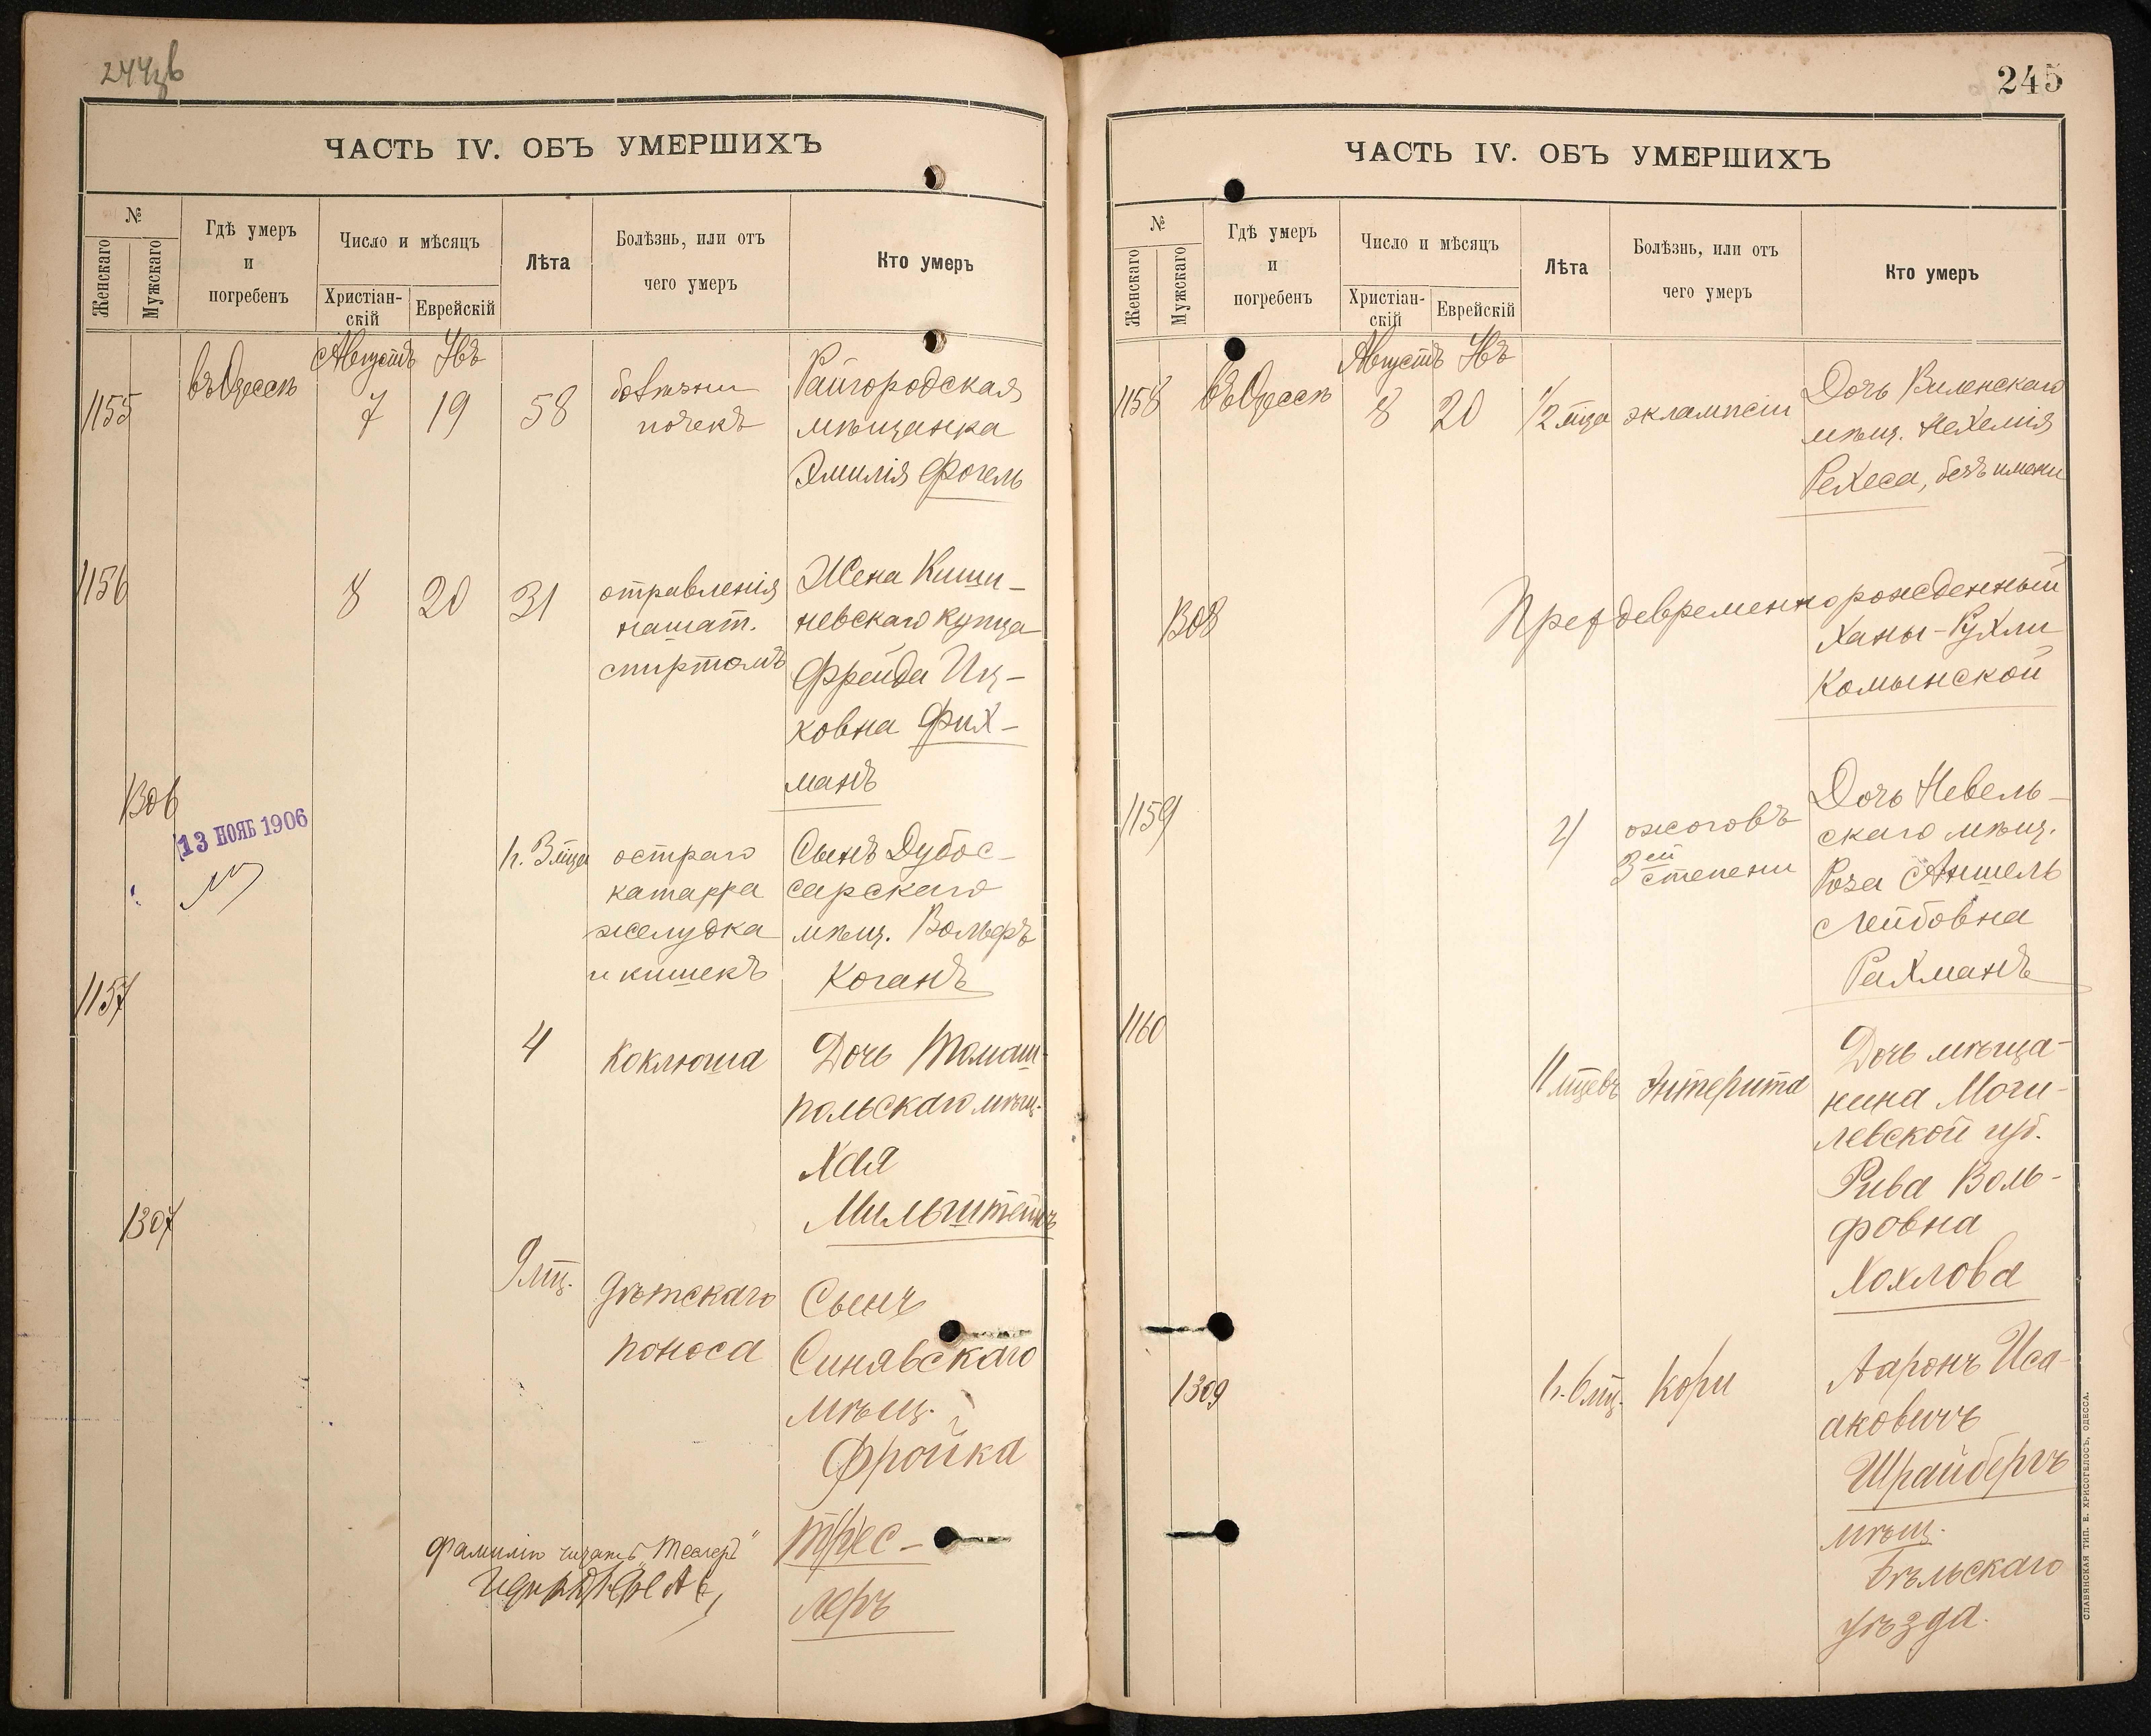 244об
ЧАСТЬ IV. ОБЪ УМЕРШИХЪ
№
Женскаго
Мужскаго
Гдѣ умеръ
и
погребенъ
Число и мѣсяцъ
Христіан-
скій
Еврейскій
Лѣта
Болѣзнь, или отъ
чего умеръ
Кто умеръ
Августъ
1155
въ Одессѣ
7
19
58
болѣзни
почекъ
Райгородская
мѣщанка
Эмилія Фогель
1156
8
20
31
отравленія
нашат.
спиртомъ
Жена Киши-
невскаго купца
Фрейда Иц-
ковна Фих-
манъ
1306
13 НОЯБ 1906
1. 3 мца
остраго
катарра
желудка
и кишекъ
Сынъ Дубос-
сарскаго
мѣщ. Вольфъ
Коганъ
1157
4
Коклюша
Дочь Томаш-
польскаго мѣщ.
Хая
Мильштейнъ
1307
9 мц.
Дѣтскаго
поноса
Сынъ
Синявскаго
мѣщ.
Фройка
Тес-
леръ
фамилію читать „Теслеръ"
245
ЧАСТЬ IV. ОБЪ УМЕРШИХЪ
№
Женскаго
Мужскаго
Гдѣ умеръ
и
погребенъ
Число и мѣсяцъ
Христіан-
скій
Еврейскій
Лѣта
Болѣзнь, или отъ
чего умеръ
Кто умеръ
Августъ
1158
въ Одессѣ
8
20
1/2 мца
эклампсіи
Дочь Виленскаго
мѣщ. Нехемія
Рехеса, безъ имени
1308
Преждевременнорожденный
Ханы-Рухли
Комынской
1159
4
ожоговъ
3ей степени
Дочь Невель-
скаго мѣщ.
Роза Аншель
Лейбовна
Рахманъ
1160
11 мцевъ
Энтерита
Дочь мѣща-
нина Моги-
левской губ.
Рива Воль-
фовна
Хохлова
1309
1. 6 мц.
Кори
Ааронъ Иса-
аковичъ
Шрайбергъ
мѣщ.
Бѣльскаго
уѣзда.
СЛАВЯНСКАЯ ТИП. Е. ХРИСОГЕЛОСЪ, ОДЕССА.